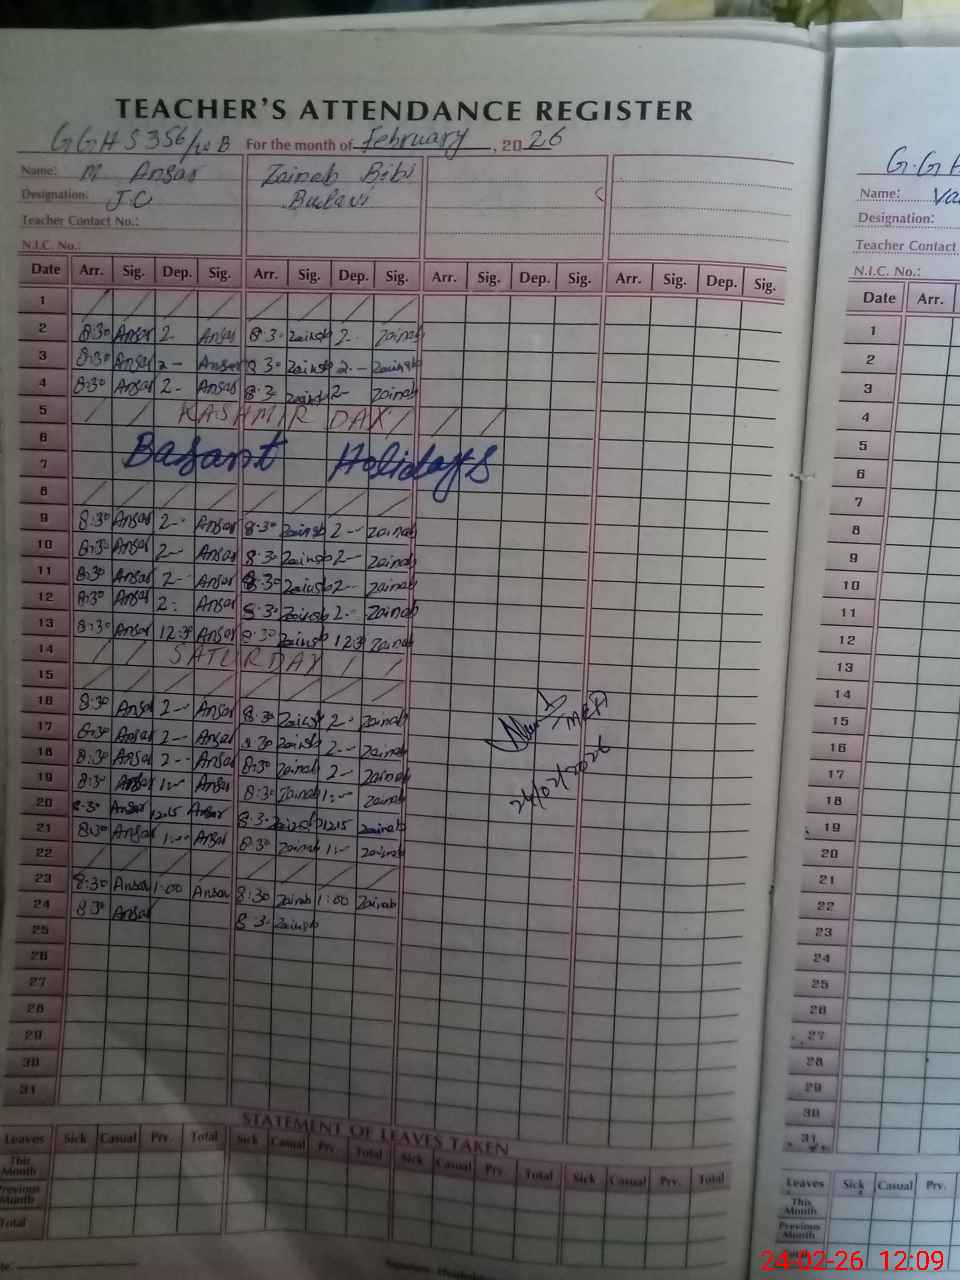 TEACHER'S ATTENDANCE REGISTER
GGHS 356/ B For the month of February, 2026
Name: M Ansar Zainab Bibi
Designation: J.C
Teacher Contact No.:
N.I.C. No.:
Date Arr. Sig. Dep. Sig. Arr. Sig. Dep. Sig. Arr. Sig. Dep. Sig. Arr. Sig. Dep. Sig.
1
2 8:30 Ansar 2- Ansar 8:30 Zainab 2- Zainab
3 8:30 Ansar 2-- Ansar 8:30 Zainab 2-- Zainab
4 8:30 Ansar 2- Ansar 8:30 Zainab 2- Zainab
5 KASHMIR DAY
6
7 Basant Holidays
8
9 8:30 Ansar 2-- Ansar 8:30 Zainab 2-- Zainab
10 8:30 Ansar 2-- Ansar 8:30 Zainab 2-- Zainab
11 8:30 Ansar 2-- Ansar 8:30 Zainab 2-- Zainab
12 8:30 Ansar 2: Ansar 8:30 Zainab 2-- Zainab
13 8:30 Ansar 12:30 Ansar 8:30 Zainab 12:30 Zainab
14 SATURDAY
15
16 8:30 Ansar 2-- Ansar 8:30 Zainab 2-- Zainab
17 8:30 Ansar 2-- Ansar 8:30 Zainab 2-- Zainab
18 8:30 Ansar 2-- Ansar 8:30 Zainab 2-- Zainab
19 8:30 Ansar 1:-- Ansar 8:30 Zainab 1:-- Zainab
20 8:30 Ansar 12:15 Ansar 8:30 Zainab 12:15 Zainab
21 8:30 Ansar 1:-- Ansar 8:30 Zainab 1:-- Zainab
22
23 8:30 Ansar 1:00 Ansar 8:30 Zainab 1:00 Zainab
24 8:30 Ansar 8:30 Zainab
25
26
27
28
29
30
31
MEA
24/02/2026
STATEMENT OF LEAVES TAKEN
Leaves Sick Casual Prv. Total Sick Casual Prv. Total Sick Casual Prv. Total Sick Casual Prv. Total
This Month
Previous Month
Total
Name:
Designation:
Teacher Contact
N.I.C. No.:
Date Arr.
1
2
3
4
5
6
7
8
9
10
11
12
13
14
15
16
17
18
19
20
21
22
23
24
25
26
27
28
29
30
31
Leaves Sick Casual Prv.
This Month
Previous Month
24-02-26 12:09